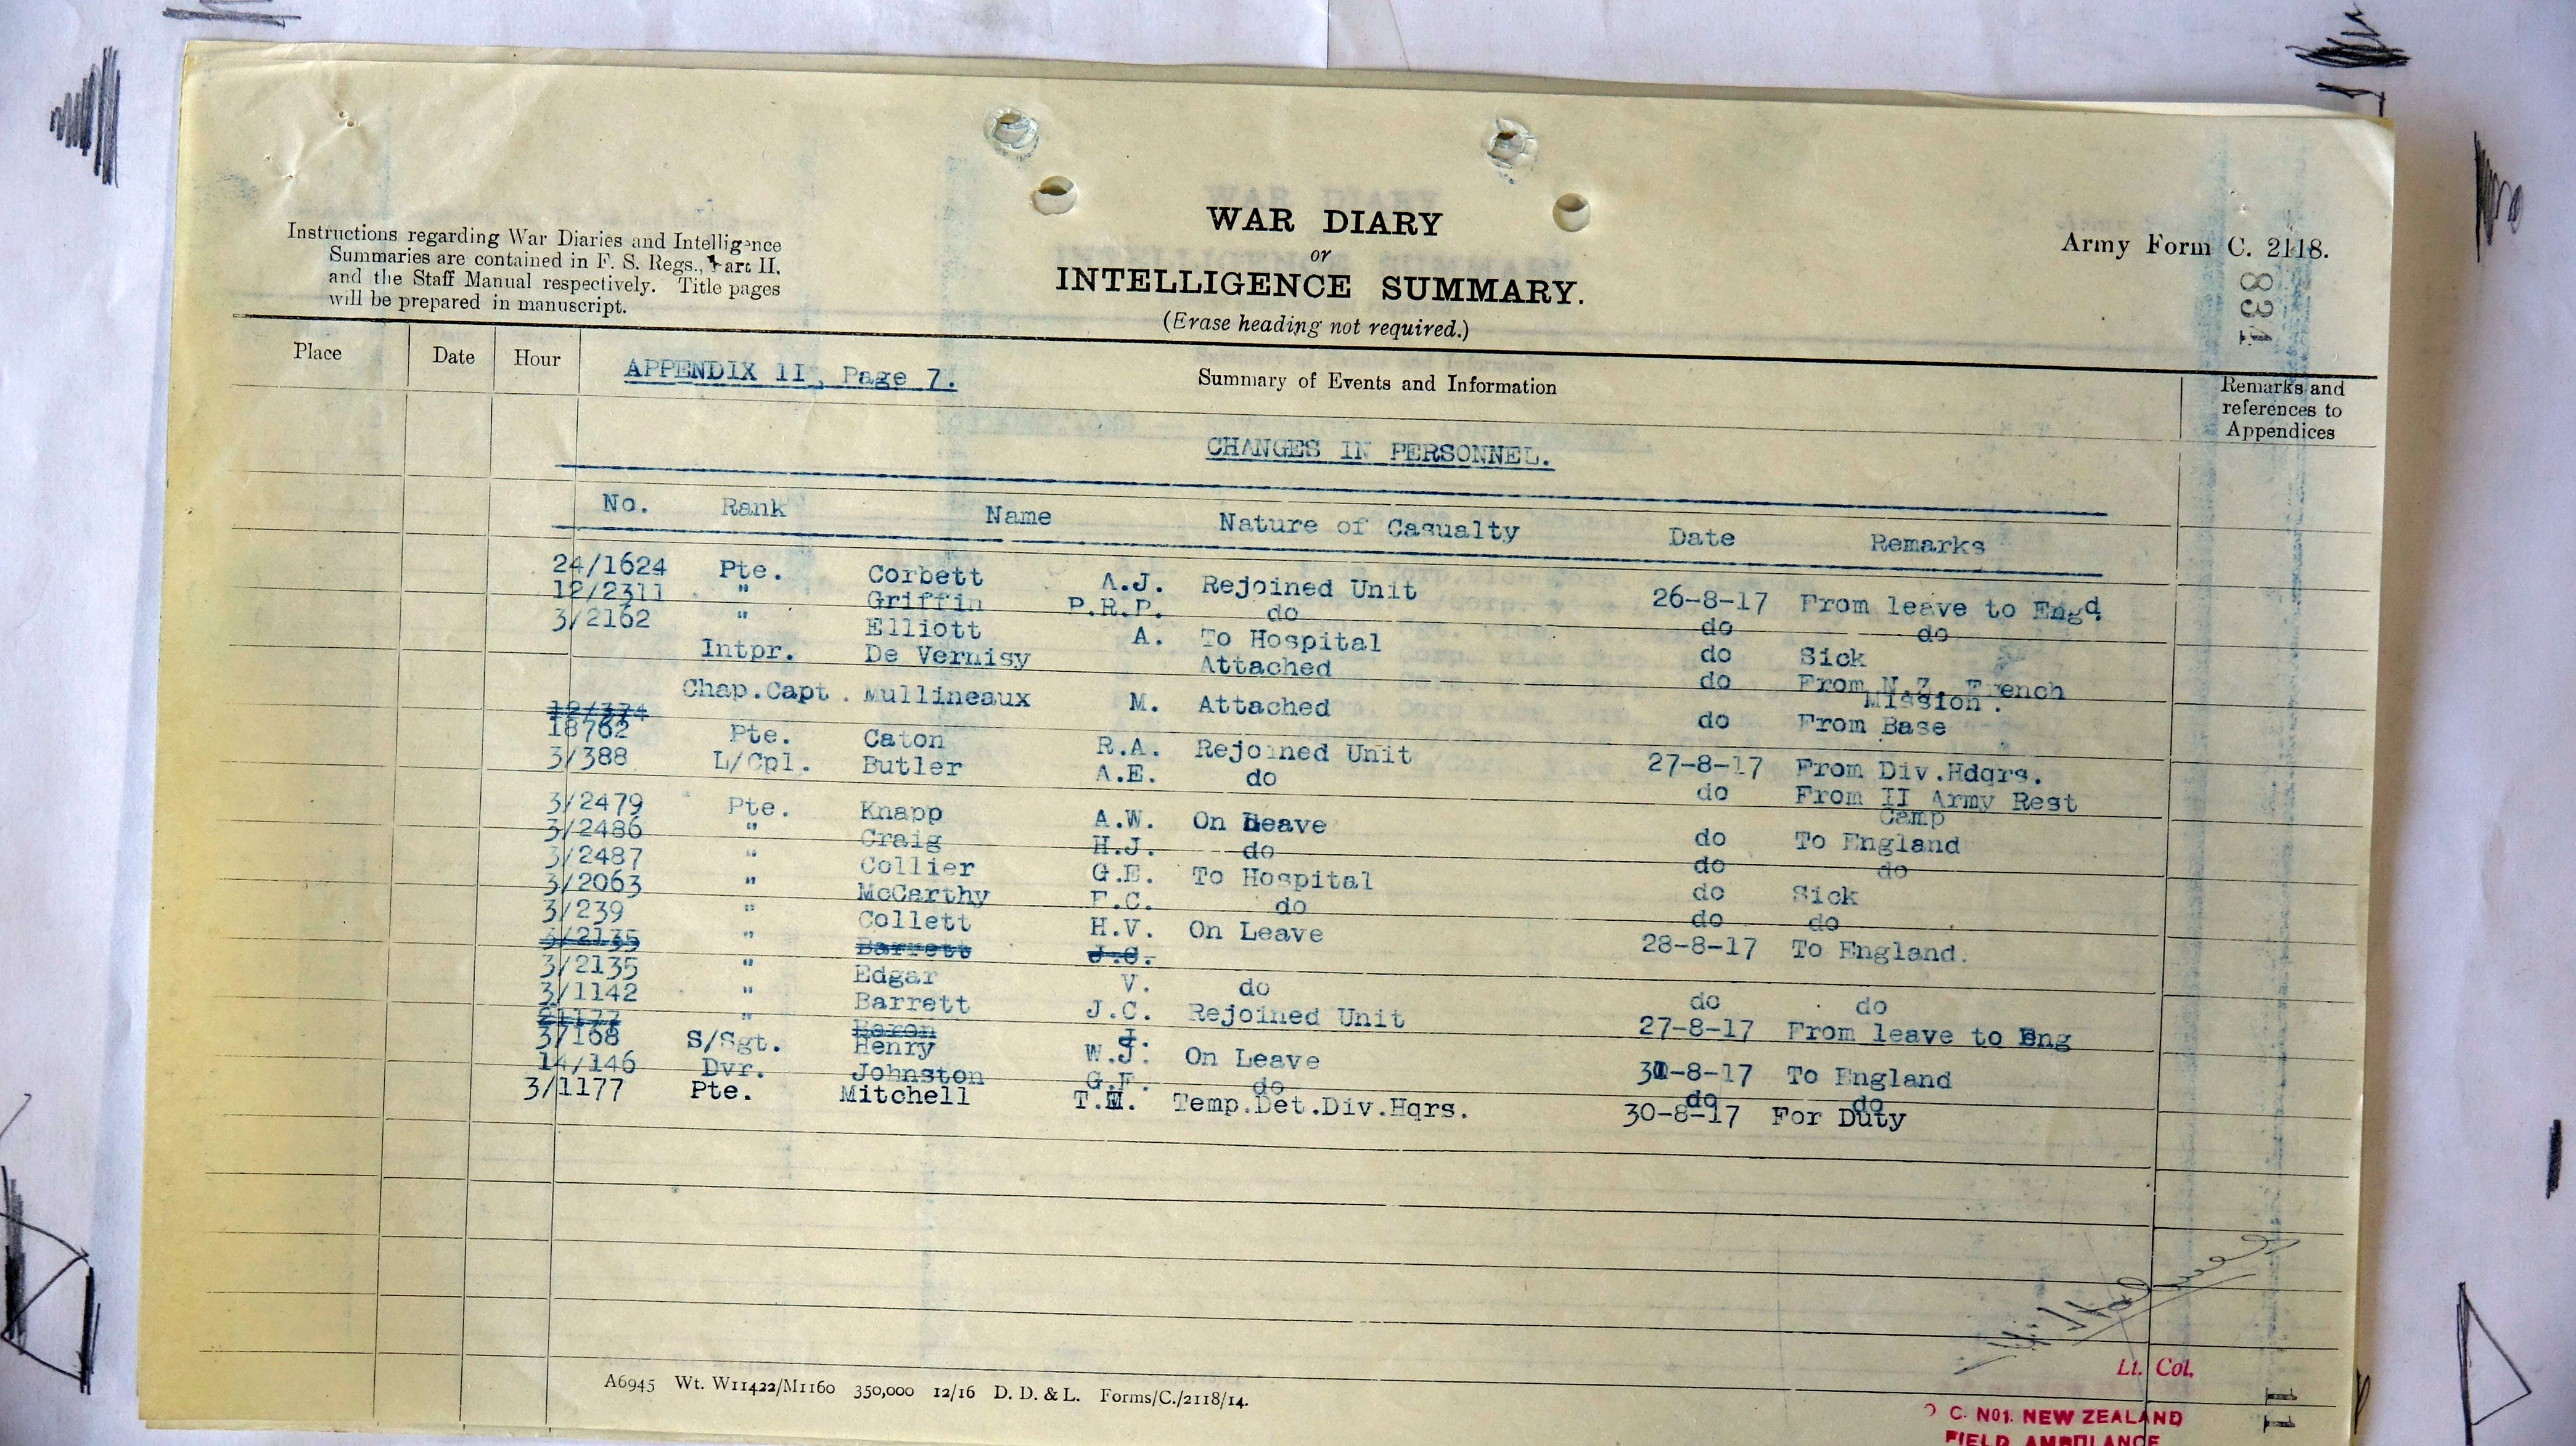 WAR DIARY
or
INTELLIGENCE SUMMARY.
(Erase heading not required.)
Instructions regarding War Diaries and Intelligence
Summaries are contained in F. S. Regs., Part II.
and the Staff Manual respectively. Title pages
will be prepared in manuscript.
Army Form C. 2118.
831
Place Date Hour APPENDIX 11, Page 7. Summary of Events and Information
Remarks and
references to
Appendices
CHANGES IN PERSONNEL.
No. Rank Name Nature of Casualty Date Remarks
24/1624 Pte. Corbett A.J. Rejoined Unit 26-8-17 From leave to Engd.
12/2311 " Griffin P.R.P. do do do
3/2162 " Elliott A. To Hospital do Sick
Intpr. De Vernisy Attached do From N.Z. French
Mission.
Chap.Capt. Mullineaux M. Attached do From Base
12/374
18762 Pte. Caton R.A. Rejoined Unit 27-8-17 From Div.Hdqrs.
3/388 L/Cpl. Butler A.E. do do From II Army Rest
Camp
3/2479 Pte. Knapp A.W. On Leave do To England
3/2486 " Craig H.J. do do do
3/2487 " Collier G.E. To Hospital do Sick
3/2063 " McCarthy F.C. do do do
3/239 " Collett H.V. On Leave 28-8-17 To England.
3/2135 " Barrett J.C.
3/2135 " Edgar V. do do do
3/1142 " Barrett J.C. Rejoined Unit 27-8-17 From leave to Eng
21177 " Baron J.
3/168 S/Sgt. Henry W.J. On Leave 30-8-17 To England
14/146 Dvr. Johnston G.F. do do do
3/1177 Pte. Mitchell T. Temp.Det.Div.Hqrs. 30-8-17 For Duty
Lt. Col.
C. No1. NEW ZEALAND
FIELD AMBULANCE
11
A6945 Wt. W11422/M1160 350,000 12/16 D. D. & L. Forms/C./2118/14.